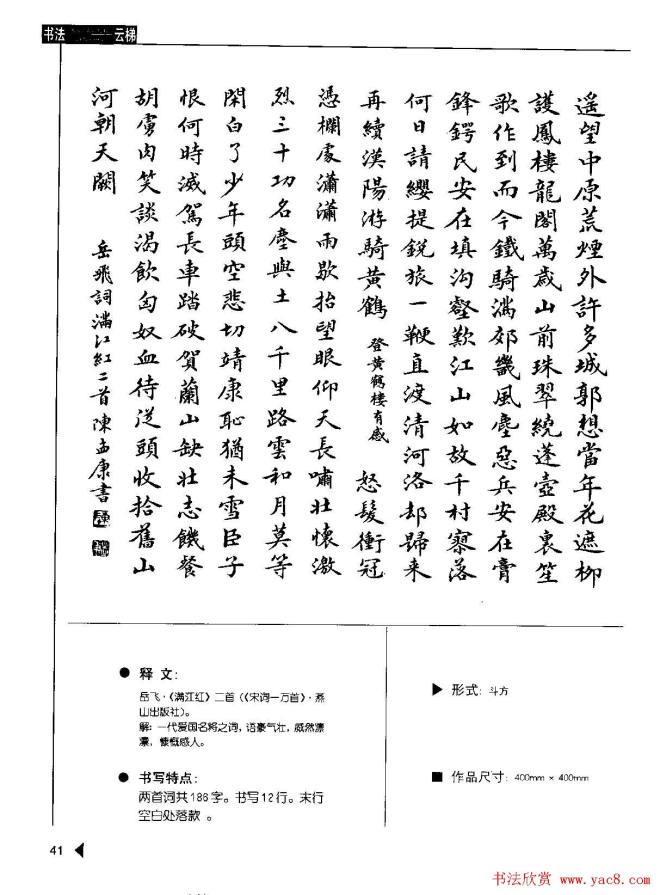 书法 云梯
遥望中原荒煙外許多城郭想當年花遮柳
護鳳樓龍閣萬歲山前珠翠繞蓬壺殿裏笙
歌作到而今鐵騎滿郊畿風塵惡兵安在膏
鋒鍔民安在填沟壑歎江山如故千村寥落
何日請纓提鋭旅一鞭直渡清河洛却歸来
再續漢陽游騎黄鶴 登黄鶴樓有感 怒髮衝冠
憑欄處瀟瀟雨歇抬望眼仰天長嘯壮懷激
烈三十功名塵與土八千里路雲和月莫等
閑白了少年頭空悲切靖康恥猶未雪臣子
恨何時滅駕長車踏破賀蘭山缺壮志饑餐
胡虜肉笑談渴飲匈奴血待從頭收拾舊山
河朝天闕 岳飛詞滿江紅二首陳孟康書
● 释 文:
岳飞·《满江红》二首(《宋词一万首》·燕
山出版社)。
解: 一代爱国名将之词,语豪气壮,威然凛
凛,慷慨感人。
● 书写特点:
两首词共186字。书写12行。末行
空白处落款 。
▶ 形式: 斗方
■ 作品尺寸: 400mm × 400mm
41 ◀
书法欣赏 www.yac8.com